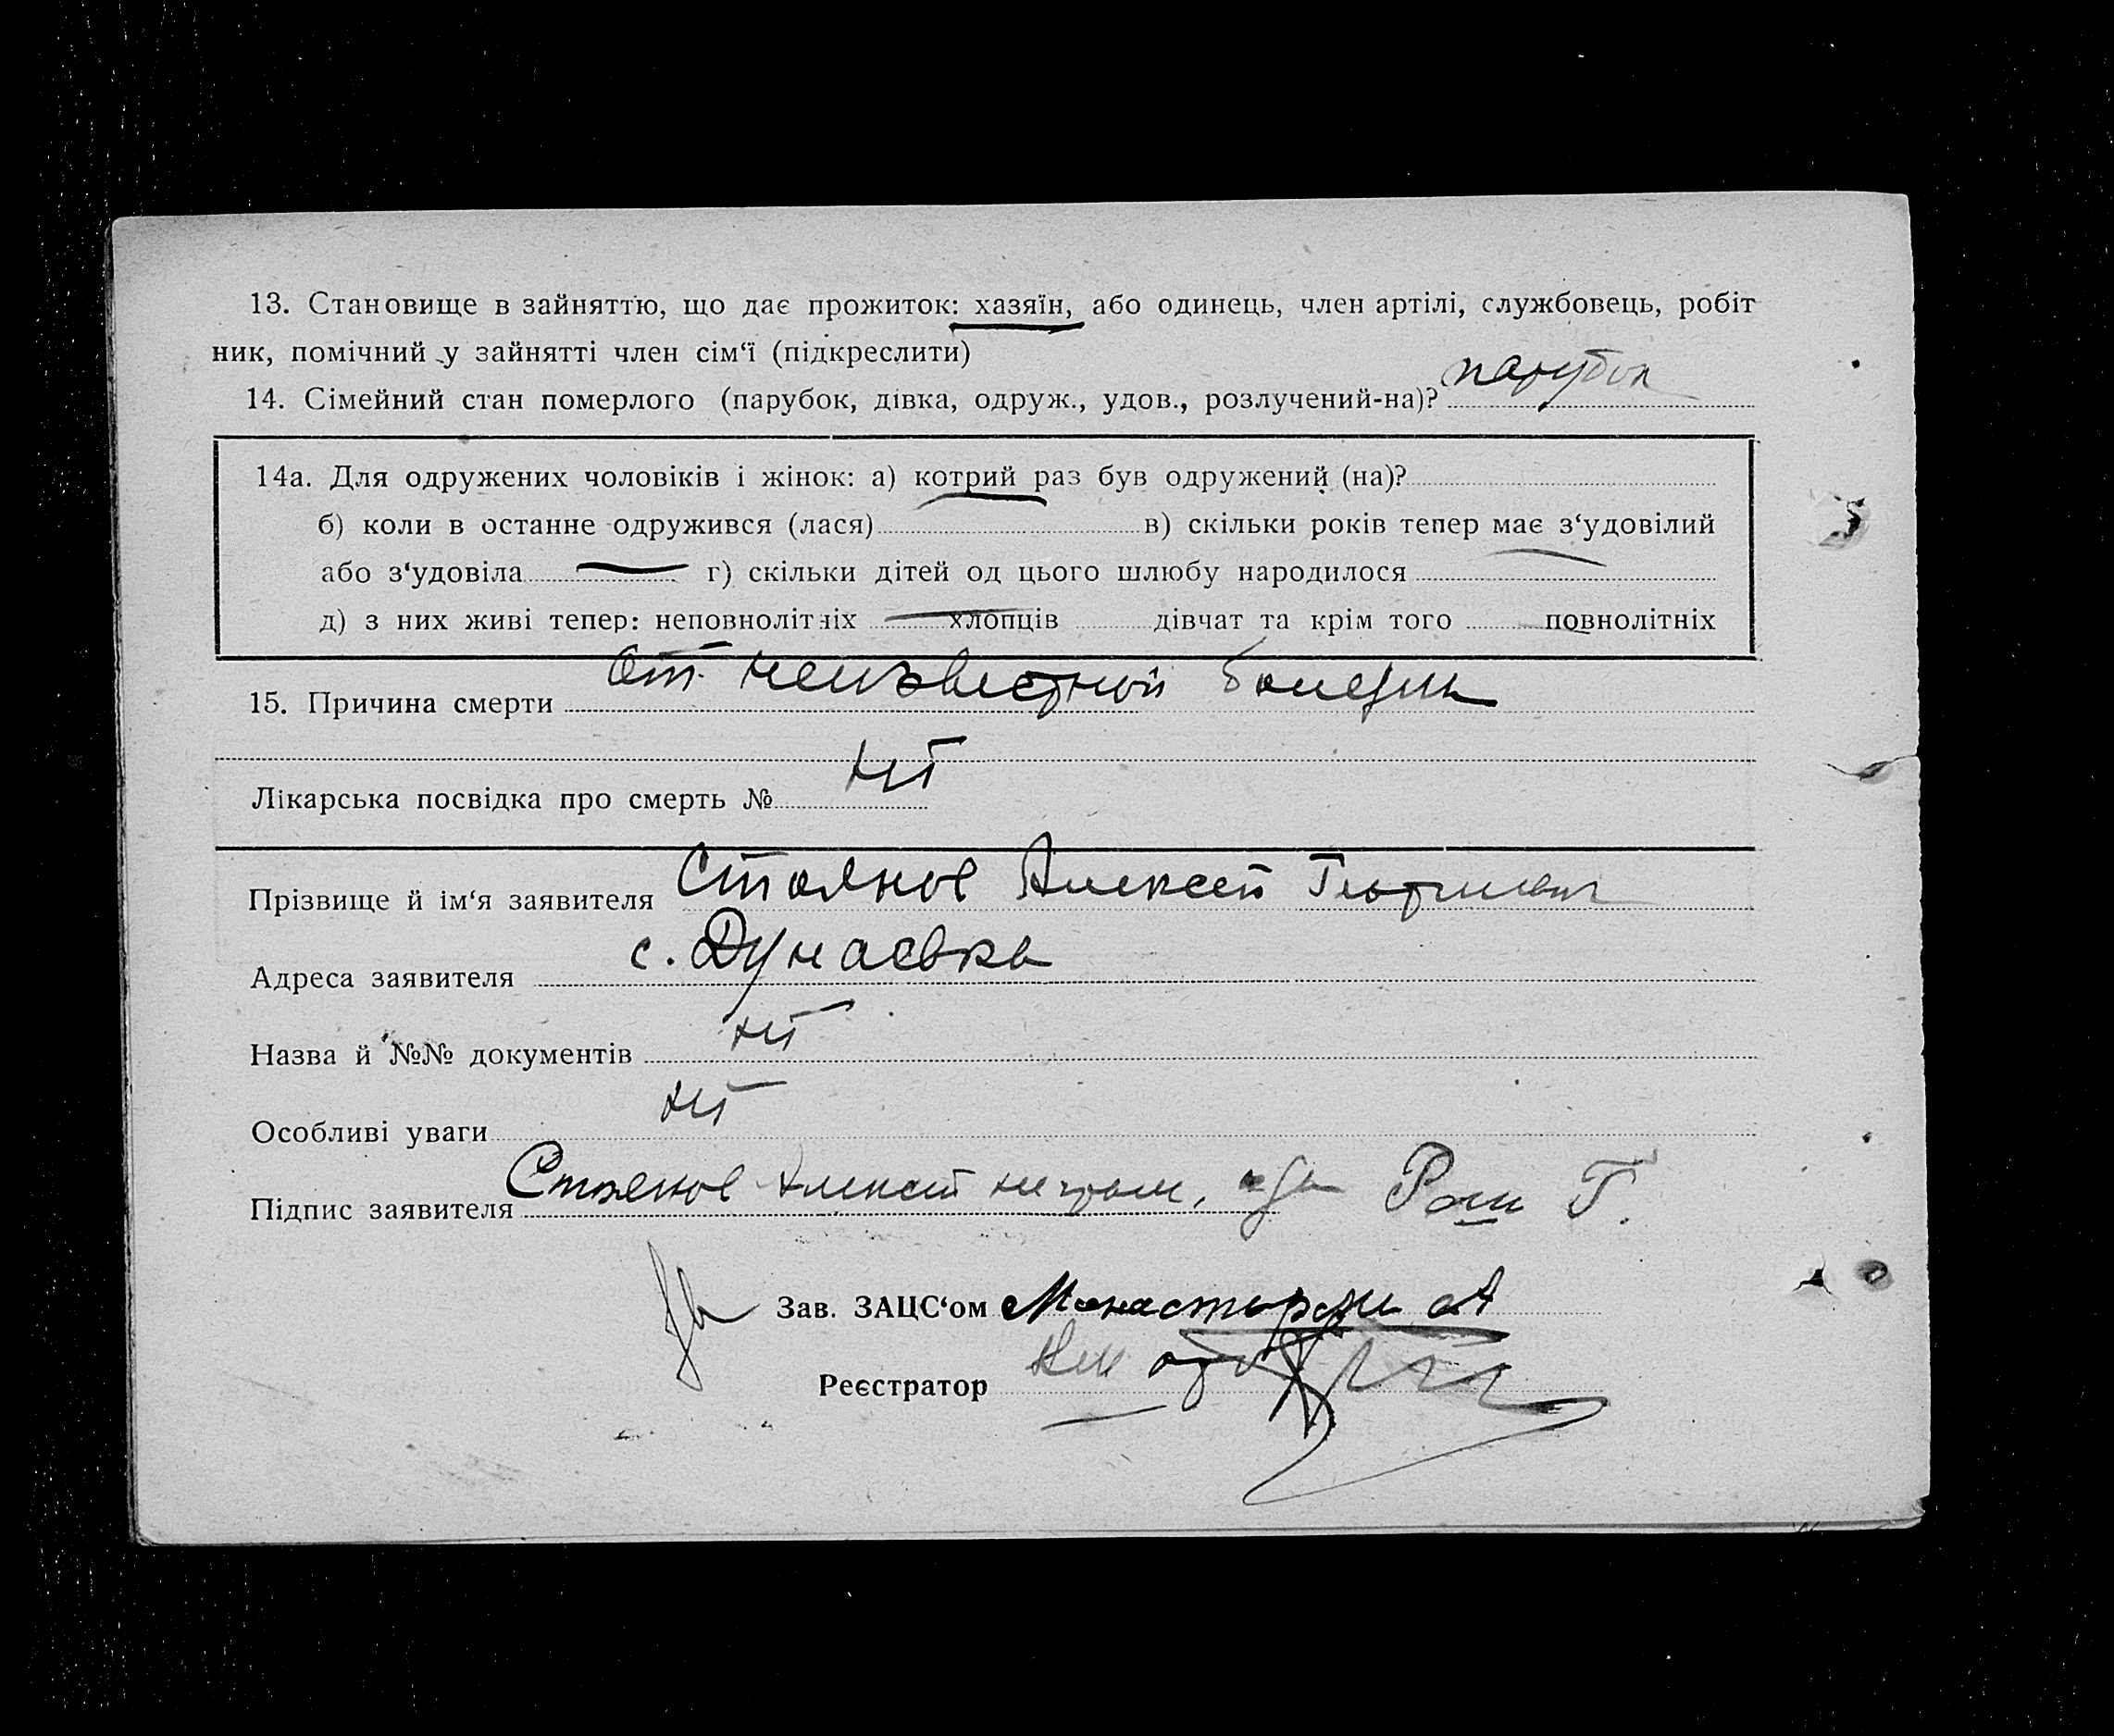 13. Становище в зайняттю, що дає прожиток: хазяїн, або одинець, член артілі, службовець, робіт
ник, помічний у зайнятті член сім‘ї (підкреслити)
14. Сімейний стан померлого (парубок, дівка, одруж., удов., розлучений-на)? парубок
14а. Для одружених чоловіків і жінок: а) котрий раз був одружений (на)?
б) коли в останне одружився (лася) в) скільки років тепер має з‘удовілий
або з‘удовіла г) скільки дітей од цього шлюбу народилося
д) з них живі тепер: неповнолітніх хлопців дівчат та крім того повнолітніх
15. Причина смерти От неизвестной
Лікарська посвідка про смерть № нет
Прізвище й ім‘я заявителя Стоянов Алексей Георгиевич
Адреса заявителя с. Дунаевка
Назва й №№ документів нет
Особливі уваги нет
Підпис заявителя Стоянов Алексей неграм.
Зав. ЗАЦС‘ом
Реєстратор